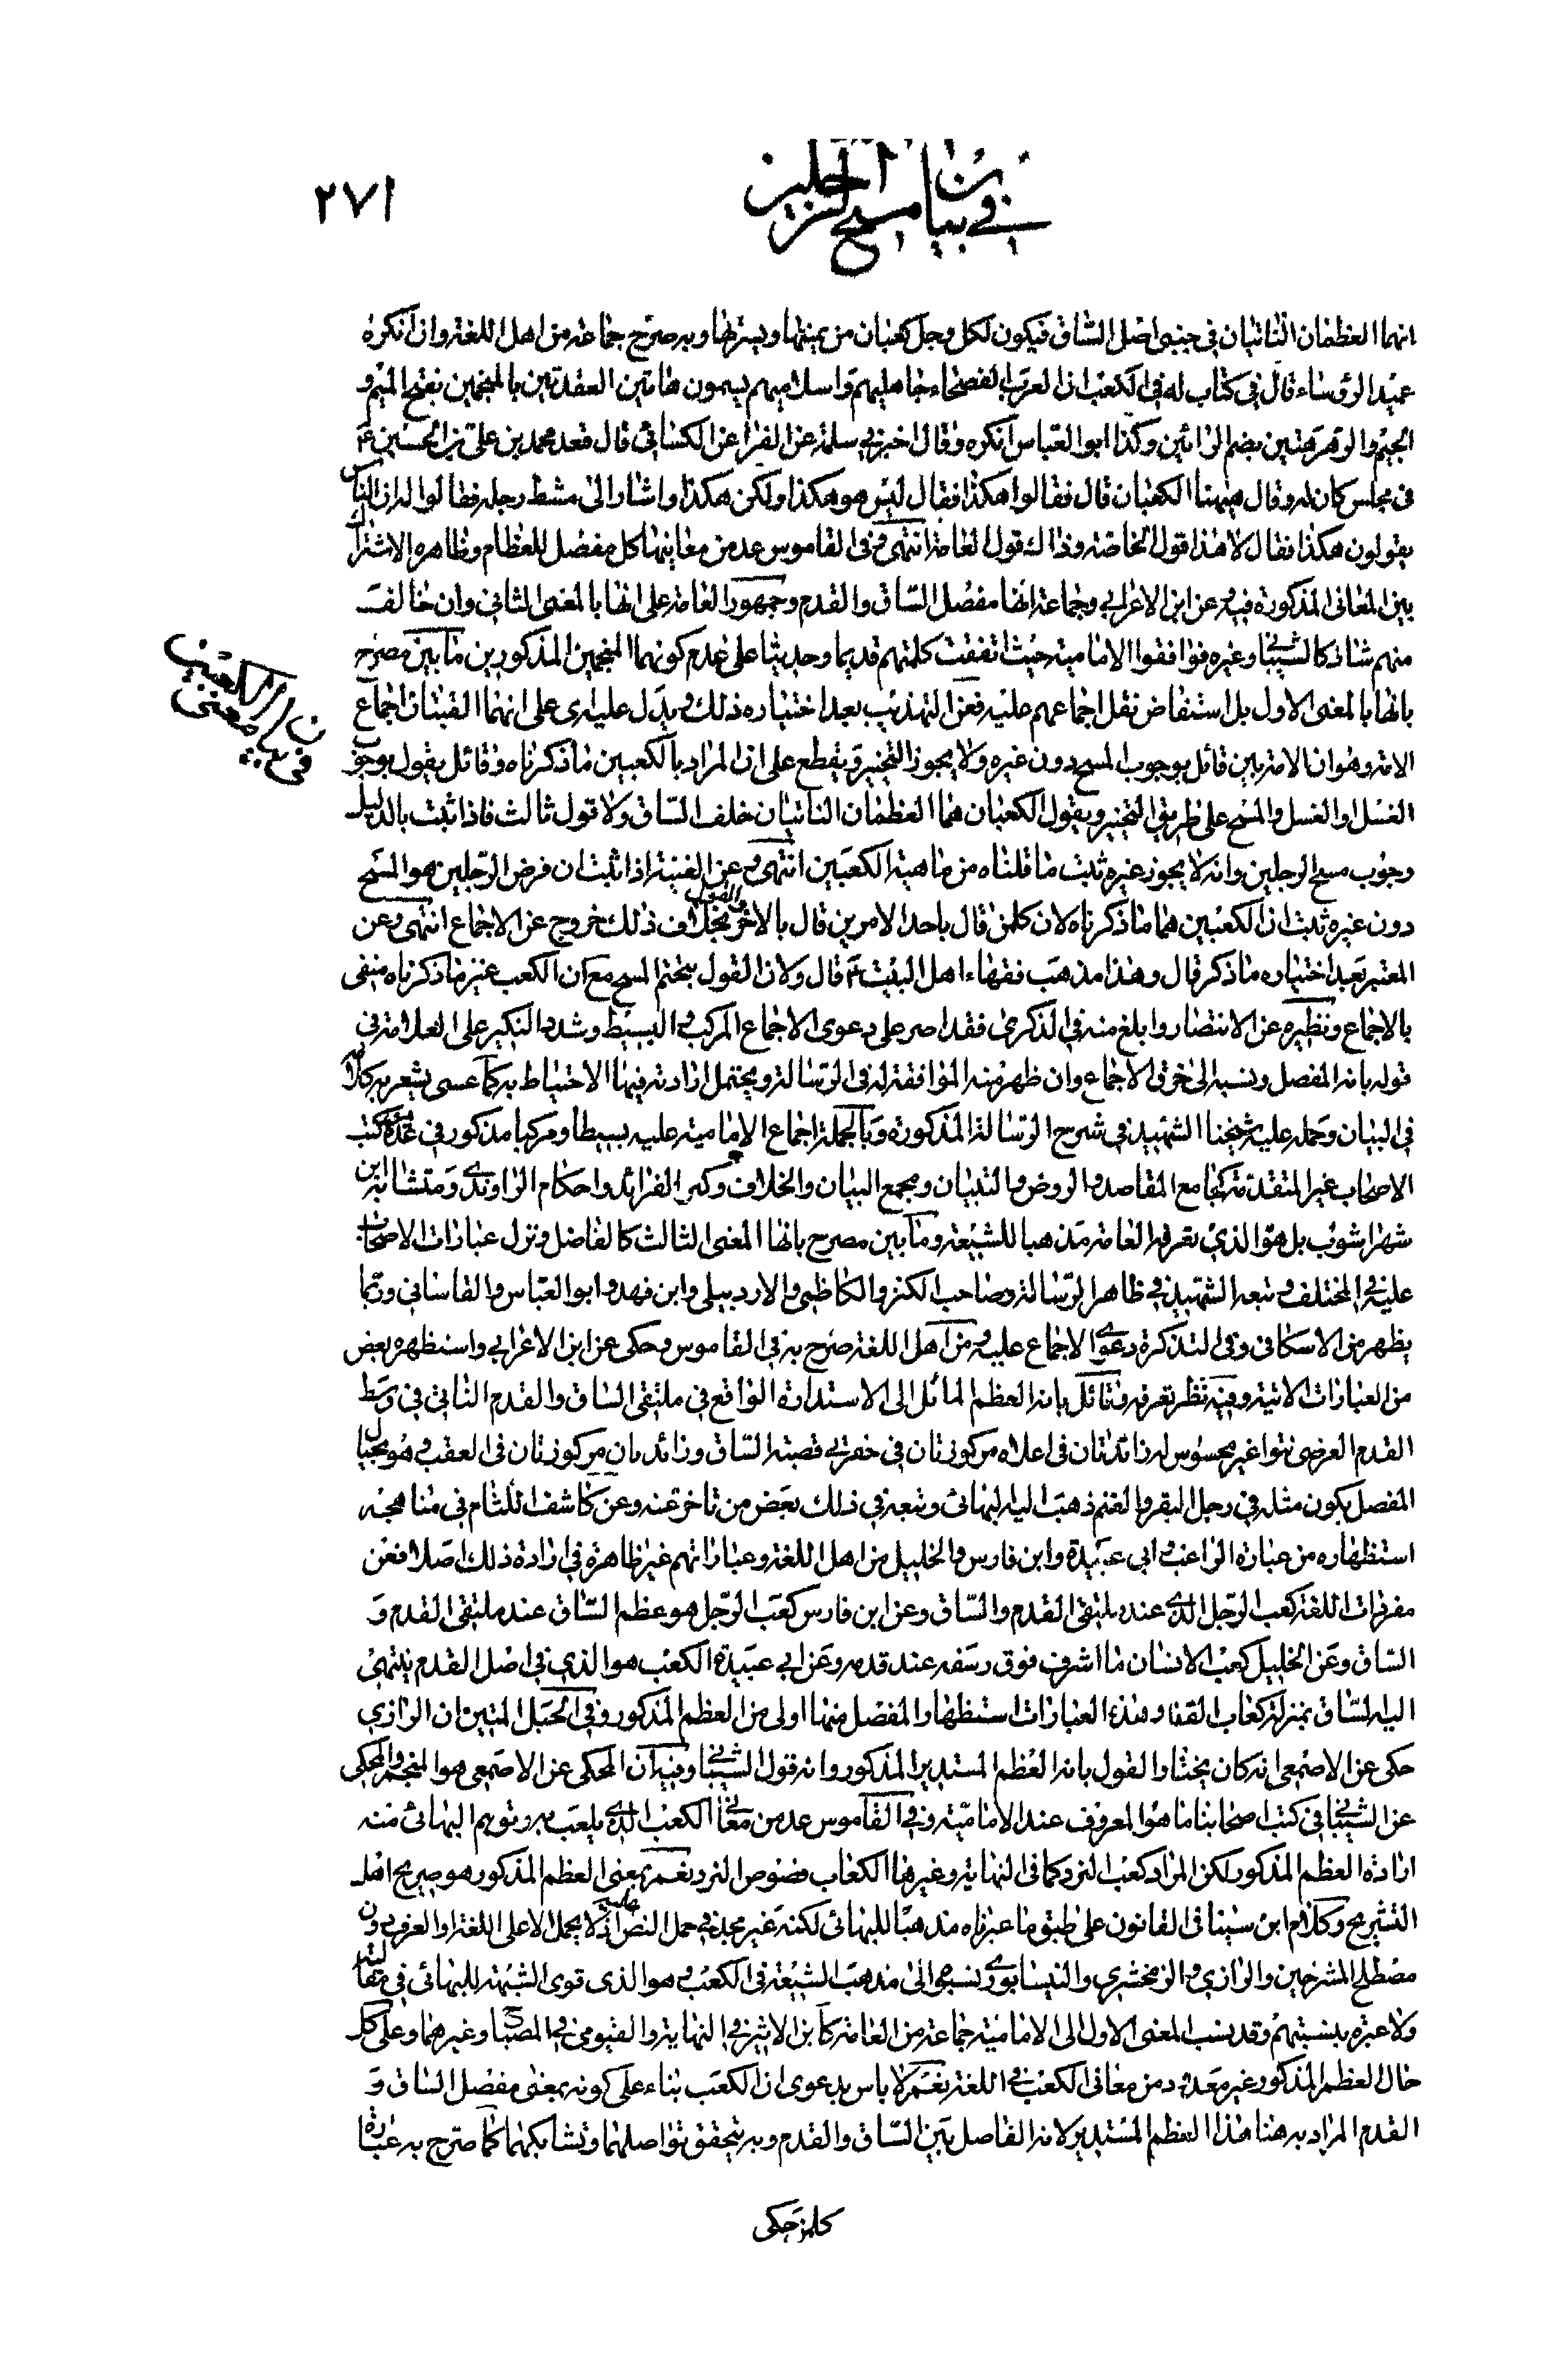 في بيان مسح الرجلين
٢٧١
انهما العظمان الناتيان في جنبي اصل الساق فيكون لكل رجل كعبان من يمينها ويسرها وبه صرح جماعة من اهل اللغة وان انكره
عميد الرؤساء قال في كتاب له في الكعب ان العرب الفصحاء جاهليهم واسلاميهم يسمون هاتين العقدتين بالمنجمين بفتح الميم و
الجيم والرهرهتين بضم الرائين وكذا ابو العباس انكره وقال اخبرني سلمة عن الفرا عن الكسائي قال قعد محمد بن علي بن الحسين ع
في مجلس كان له وقال ههنا الكعبان قال فقالوا هكذا فقال ليس هو هكذا ولكن هكذا واشار الى مشط رجله فقالوا له ان الناس
يقولون هكذا فقال لا هذا قول الخاصة وذاك قول العامة انتهى وفي القاموس عد من معانيها كل مفصل للعظام وظاهره الاشتراك
بين المعاني المذكورة فيه وعن ابن الاعرابي وجماعة انها مفصل الساق والقدم وجمهور العامة على انها بالمعنى الثاني وان خالف
منهم شاذ كالشيباني وغيره فوافقوا الامامية حيث اتفقت كلمتهم قديما وحديثا على عدم كونهما المنجمين المذكورين ما بين مصرح
بانها بالمعنى الاول بل استفاض نقل اجماعهم عليه فعن التهذيب بعد اختياره ذلك ويدل عليه اي على انهما القبتان اجماع
الامة وهو ان الامة بين قائل بوجوب المسح دون غيره ولا يجوز التخيير ويقطع على ان المراد بالكعبين ما ذكرناه وقائل يقول بوجوب
الغسل او الغسل والمسح على طريق التخيير ويقول الكعبان هما العظمان الناتيان خلف الساق ولا قول ثالث فاذا ثبت بالدليل
وجوب مسح الرجلين وانه لا يجوز غيره ثبت ما قلناه من ماهية الكعبين انتهى وعن الغنية اذا ثبت ان فرض الرجلين هو المسح
دون غيره ثبت ان الكعبين هما ما ذكرناه لان كل من قال باحد الامرين قال بالاخر والقول بخلاف ذلك خروج عن الاجماع انتهى وعن
المعتبر بعد اختياره ما ذكر قال وهذا مذهب فقهاء اهل البيت ع قال ولان القول بتحتم المسح مع ان الكعب غير ما ذكرناه منفي
بالاجماع ونظيره عن الانتصار وابلغ منه في الذكرى فقد اصر على دعوى الاجماع المركب والبسيط وشدد النكير على العلامة في
قوله بانه المفصل ونسبه الى خرق الاجماع وان ظهر منه الموافقة له في الرسالة ويحتمل ارادته فيها الاحتياط به كما عسى يشعر به كلامه
في البيان وحمله عليه شيخنا الشهيد في شرح الرسالة المذكورة وبالجملة اجماع الامامية عليه بسيطا ومركبا مذكور في عدة كتب
الاصحاب غير المتقدمة كجامع المقاصد والروض والتبيان ومجمع البيان والخلاف وكنز الفرائد واحكام الراوندي ومتشابه ابن
شهراشوب بل هو الذي تعرفه العامة مذهبا للشيعة وما بين مصرح بانها المعنى الثالث كالفاضل ونزل عبارات الاصحاب
عليه في المختلف وتبعه الشهيد في ظاهر الرسالة وصاحب الكنز والكاظمي والاردبيلي وابن فهد وابو العباس والقاساني وربما
يظهر من الاسكافي وفي التذكرة دعوى الاجماع عليه ومن اهل اللغة صرح به في القاموس وحكى عن ابن الاعرابي واستظهره بعض
من العبارات الاتية وفيه نظر تعرفه وقائل بانه العظم المائل الى الاستدارة الواقع في ملتقى الساق والقدم الناتي في وسط
القدم العرضي نتوا غير محسوس له زائدتان في اعلاه مركوزتان في حفرتي قصبة الساق وزائدتان مركوزتان في العقب وهو بحيال
المفصل يكون مثله في رجل البقر والغنم ذهب اليه البهائي وتبعه في ذلك بعض من تاخر عنه وعن كاشف اللثام في مناهجه
استظهاره من عبارة الراغب وابي عبيدة وابن فارس والخليل من اهل اللغة وعباراتهم غير ظاهرة في ارادة ذلك اصلا فعن
مفردات اللغة كعب الرجل الذي عند ملتقى القدم والساق وعن ابن فارس كعب الرجل هو عظم الساق عند ملتقى القدم و
الساق وعن الخليل كعب الانسان ما اشرف فوق رسغه عند قدمه وعن ابي عبيدة الكعب هو الذي في اصل القدم ينتهي
اليه الساق بمنزلة كعاب القنا وهذه العبارات استظهار المفصل منها اولى من العظم المذكور وفي الحبل المتين ان الرازي
حكى عن الاصمعي انه كان يختار القول بانه العظم المستدير المذكور وانه قول الشيباني وفيه ان المحكي عن الاصمعي هو المنجم والمحكي
عن الشيباني في كتب اصحابنا ما هو المعروف عند الامامية وفي القاموس عد من معاني الكعب الذي يلعب به وتوهم البهائي منه
ارادة العظم المذكور لكن المراد كعب النرد كما في النهاية وغيرها الكعاب فصوص النرد نعم بمعنى العظم المذكور هو صريح اهل
التشريح وكلام ابن سينا في القانون على طبق ما عبرناه مذهبا للبهائي لكنه غير مجد في حمل النص عليه اذ لا يحمل الا على اللغة او العرف دون
مصطلح المشرحين والرازي والزمخشري والنيسابوري نسبوا الى مذهب الشيعة في الكعب وهو الذي قوى الشبهة للبهائي في مقالته
ولا عبرة بنسبتهم وقد نسب المعنى الاول الى الامامية جماعة من العامة كابن الاثير في النهاية والفيومي في المصباح وغيرهما وعلى كل
حال العظم المذكور غير معدود من معاني الكعب في اللغة نعم لا باس بدعوى ان الكعب بناء على كونه بمعنى مفصل الساق و
القدم المراد به هنا هذا العظم المستدير لانه الفاصل بين الساق والقدم وبه يتحقق تواصلهما وتشابكهما كما صرح به عبارة
كل من حكى
في بيان معنى الكعبين